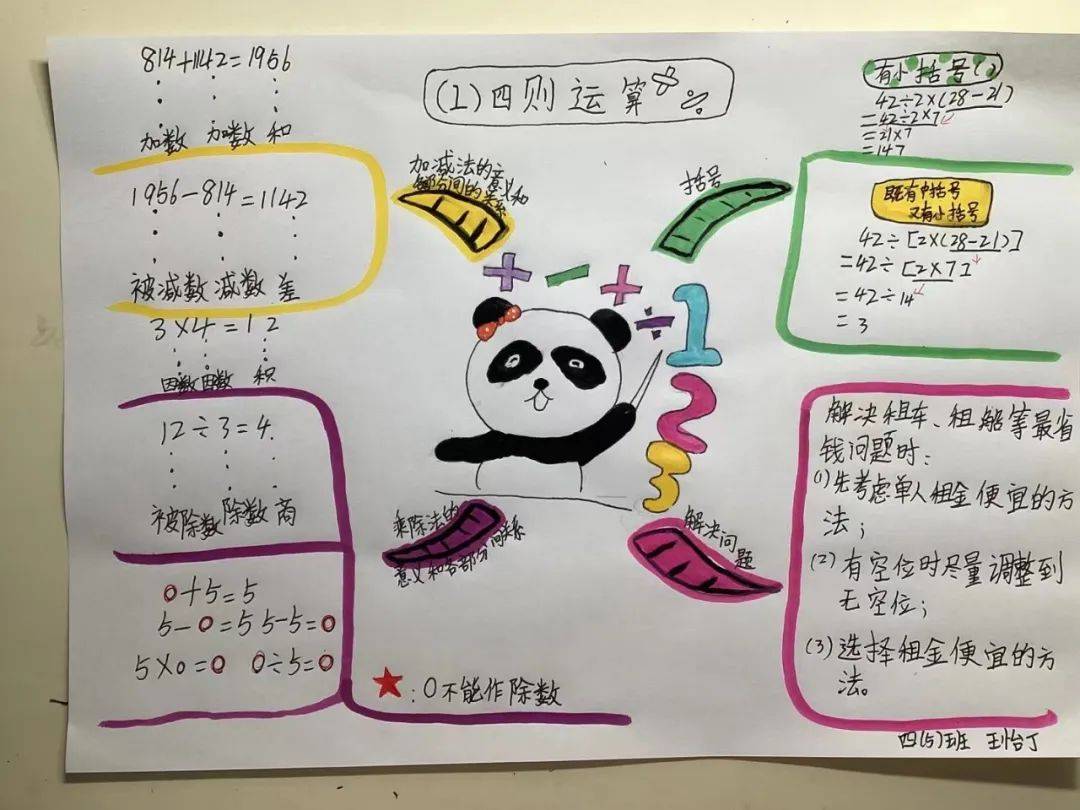 (1)四则运算
814+1142=1956
加数 加数 和
1956-814=1142
被减数 减数 差
3×4=12
因数 因数 积
12÷3=4
被除数 除数 商
0+5=5
5-0=5 5-5=0
5×0=0 0÷5=0
★:0不能作除数
加减法的意义和
各部分间的关系
乘除法的
意义和各部分间关系
括号
有小括号()
42÷2×(28-21)
=42÷2×7
=21×7
=147
既有中括号
又有小括号
42÷[2×(28-21)]
=42÷[2×7]
=42÷14
=3
1
2
3
解决问题
解决租车、租船等最省
钱问题时:
(1)先考虑单人租金便宜的方
法;
(2)有空位时尽量调整到
无空位;
(3)选择租金便宜的方
法。
四(5)班